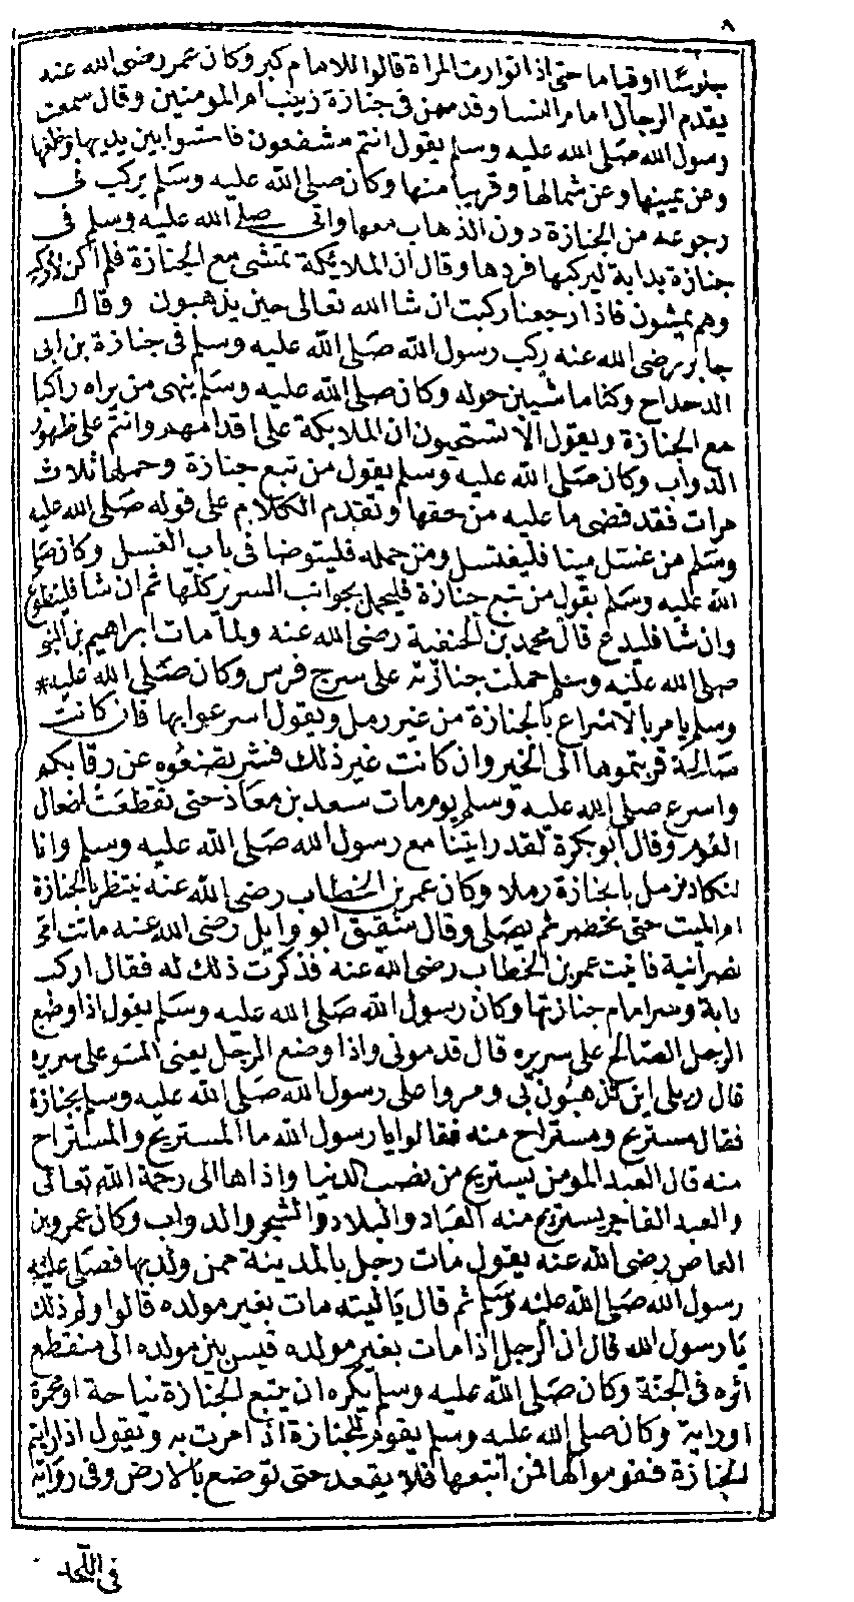 ٨
جلوسًا او قياما حتى اذا توارت المراة قالوا للامام كبر وكان عمر رضى الله عنه
يقدم الرجال امام النسا وقدمهن فى جنازة زينب ام المومنين وقال سمعت
رسول الله صَلى الله عليه وسلم يقول انتم مشفعون فامشوا بين يديها وخلفها
وعن يمينها وعن شمالها وقريبا منها وكان صلى الله عليه وسَلم يركب فى
رجوعه من الجنازة دون الذهاب معها واتى صلى الله عليه وسلم فى
جنازة بدابة ليركبها فردها وقال ان الملايكة تمشى مع الجنازة فلم اكن لاركب
وهم يمشون فاذا رجعنا ركبت ان شا الله تعالى حين يذهبون وقال
جابر رضى الله عنه ركب رسول الله صَلى الله عليه وسلم فى جنازة بن ابى
الدحداح وكنا ماشيين حوله وكان صلى الله عليه وسَلم ينهى من يراه راكبا
مع الجنازة ويقول الا تستحيون ان الملايكة على اقدامهم وانتم على ظهور
الدواب وكان صَلى الله عليه وسلم يقول من تبع جنازة وحملها ثلاث
مرات فقد قضى ما عليه من حقها وتقدم الكلام على قوله صَلى الله عليه
وسَلم من غسَل ميتا فليغتسل ومن حمله فليتوضا فى باب الغسل وكان صَلى
الله عليه وسَلم يقول من تبع جنازة فليحمل بجوانب السرير كلها ثم ان شا فليتطوع
وان شا فليدع قال محمد بن الحنفية رضى الله عنه ولما مات ابراهيم بن النبى
صلى الله عليه وسلم حملت جنازته على سرج فرس وكان صَلى الله عليه*
وسلم يامر بالاسراع بالجنازة من غير رمل ويقول اسرعوا بها فان كانت
صَالحة قربتموها الى الخير وان كانت غير ذلك فشر تضعُوه عن رقابكم
واسرع صلى الله عليه وسلم يوم مات سعد بن معاذ حتى تقطعَت نعال
القوم وقال ابو بكرة لقد رايتنا مع رسول الله صَلى الله عليه وسلم وانا
لنكاد نرمل بالجنازة رملا وكان عمر بن الخطاب رضى الله عنه ينتظر بالجنازة
ام الميت حتى تحضر ثم يصَلى وقال شقيق ابو وايل رضى الله عنه ماتت امى
نصرانية فاتيت عمر بن الخطاب رضى الله عنه فذكرت ذلك له فقال اركب
دابة وسر امام جنازتها وكان رسول الله صَلى الله عليه وسَلم يقول اذا وضع
الرجل الصَالح على سريره قال قدمونى واذا وضع الرجل يعنى السَوء على سريره
قال ويلى اين تذهبُون بى ومروا على رسول الله صَلى الله عليه وسلم بجنازة
فقال مستريح ومستراح منه فقالوا يا رسول الله ما المستريح والمستراح
منه قال العبد المومن يستريح من نصب الدنيا واذاها الى رحمة الله تعالى
والعبد الفاجر يستريح منه العبَاد والبلاد والشجر والدواب وكان عمرو بن
العاص رضى الله عنه يقول مات رجل بالمدينة ممن ولد بها فصَلى عليه
رسول الله صَلى الله عليه وسَلم ثم قال يَا ليته مات بغير مولده قالوا ولم ذلك
يَا رسول الله قال ان الرجل اذا مات بغير مولده قيس بين مولده الى منقطع
اثره فى الجنة وكان صَلى الله عليه وسلم يكره ان يتبع الجنازة نياحة او مجمرة
او راية وكان صلى الله عليه وسلم يقوم للجنازة اذا مرت به ويقول اذا رايتم
الجنازة فقوموا لها فمن اتبعها فلا يقعد حتى توضع بالارض وفى رواية
فى اللحد